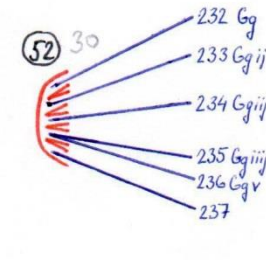 232 Gg
52 30
233 Ggij
234 Ggiij
235 Ggiiij
236 Ggv
237